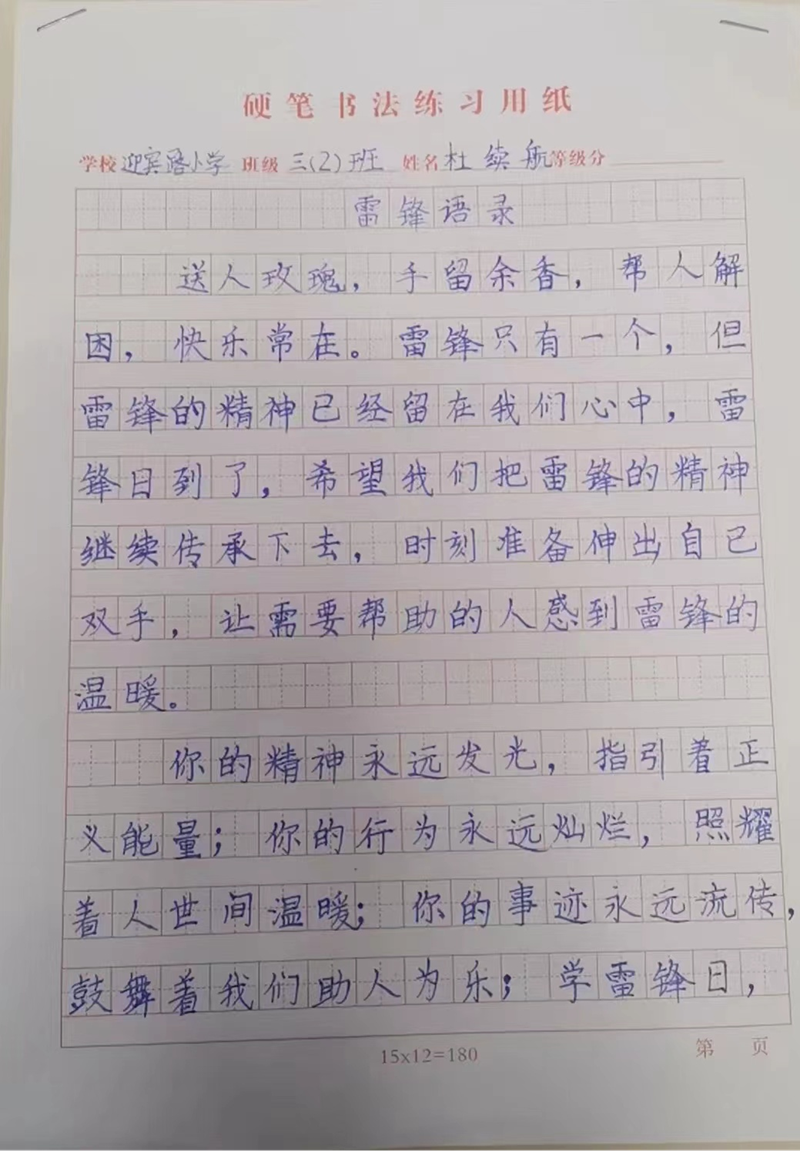 硬笔书法练习用纸
学校迎宾路小学 班级三(2)班 姓名杜续航等级分
雷锋语录
送人玫瑰，手留余香，帮人解
困，快乐常在。雷锋只有一个，但
雷锋的精神已经留在我们心中，雷
锋日到了，希望我们把雷锋的精神
继续传承下去，时刻准备伸出自己
双手，让需要帮助的人感到雷锋的
温暖。
你的精神永远发光，指引着正
义能量；你的行为永远灿烂，照耀
着人世间温暖；你的事迹永远流传，
鼓舞着我们助人为乐；学雷锋日，
15x12=180
第 页